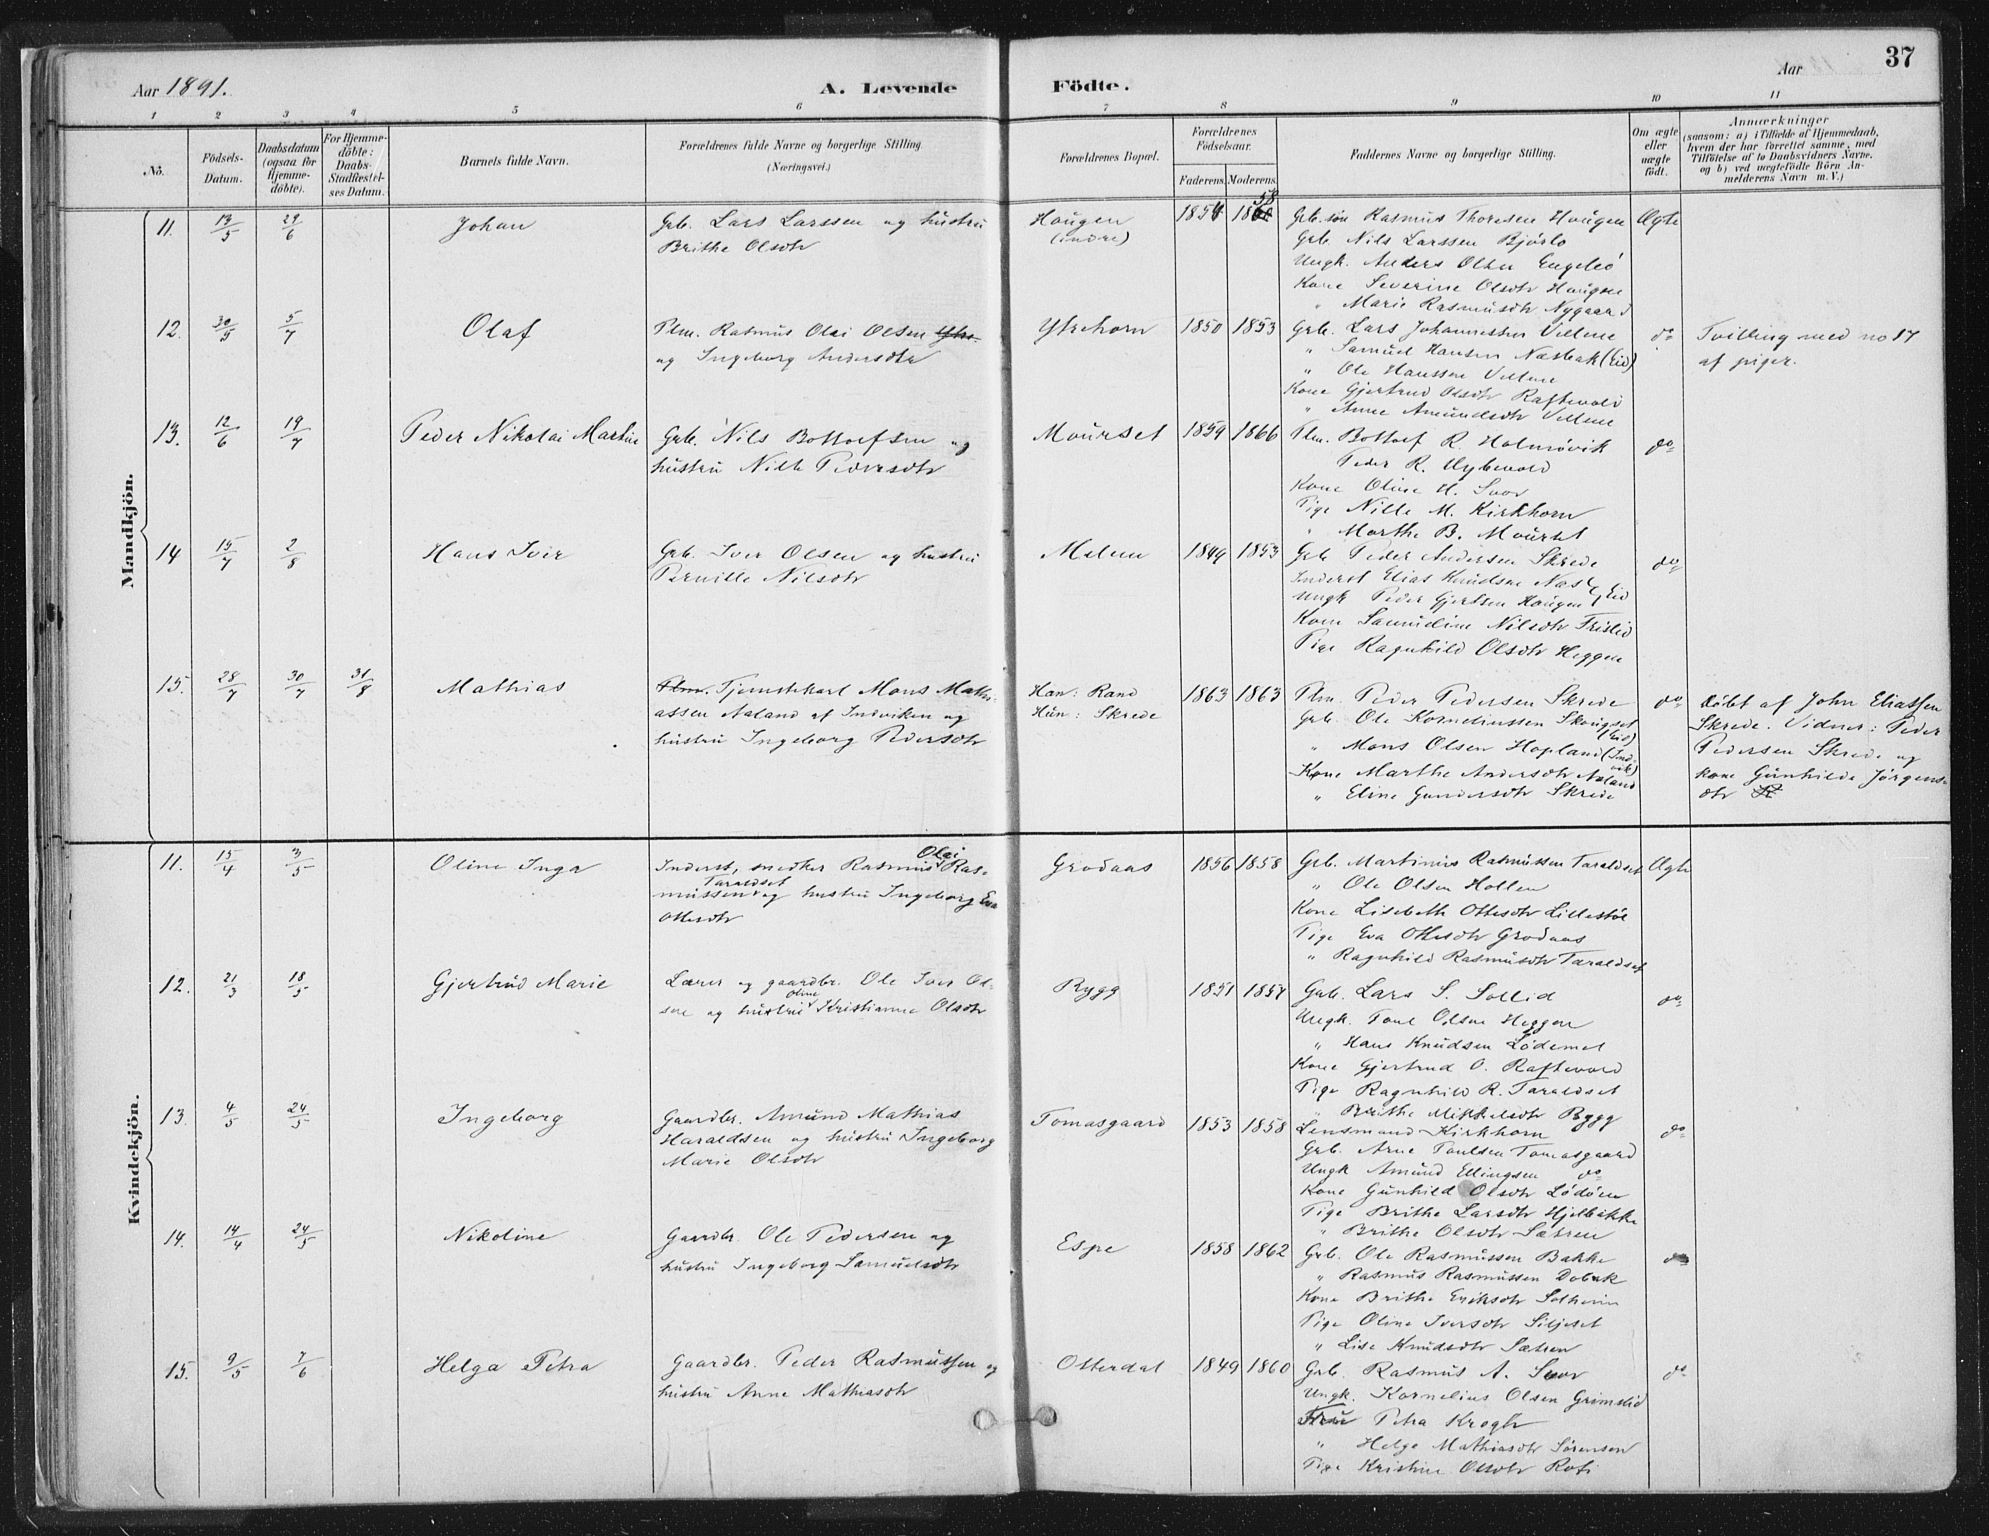 37
Aar 1891.
A. Levende Födte.
Aar
1 2 3 4 5 6 7 8 9 10 11
No.
Födsels-Datum.
Daabsdatum (ogsaa for Hjemmedöbte).
For Hjemmedöbte: Daabs-Stadfæstelses Datum.
Barnets fulde Navn.
Forældrenes fulde Navne og borgerlige Stilling (Næringsvei.)
Forældrenes Bopæl.
Forældrenes Födselsaar.
Faderens. Moderens.
Faddernes Navne og borgerlige Stilling.
Om ægte eller uægte födt.
Anmærkninger
(saasom: a) i Tilfælde af Hjemmedaab,
hvem der har forrettet samme, med
Tilföielse af to Daabsvidners Navne,
og b) ved uægtefödte Börn An-
melderens Navn m. V.)
Mandkjön.
11. 13/5 29/6 Johan
Grb. Lars Larssen og hustru
Brithe Olsdtr
Haugen
(indre)
1856 58
Grb. søn Rasmus Thoresen Haugen
Grb. Nils Larssen Bjørlo
Ungk. Anders Olsen
Kone Severine Olsdtr Haugen
" Marie Rasmusdtr Nygaard
Ægte
12. 30/5 5/7 Olaf
Plm. Rasmus Olai Olsen
og Ingeborg Andersdtr
Ytrehorn
1850 1853
Grb. Lars Johannessen Vellene
" Samuel Hansen Næsbak (Eid)
" Ole Hanssen Vellene
Kone Gjertrud Olsdtr Raftevold
" Anne Amundsdtr Vellene
do
Tvilling med no 17
af piger.
13. 12/6 19/7 Peder Nikolai Martin
Grb. Nils Bottolfsen og
hustru Nille Pedersdtr
Mourset
1859 1866
Plm. Bottolf R. Holmövik
Peder R. Nybevold
Kone Oline H. Svor
Pige Nille M. Kirkhorn
" Marthe B. Mourset
do
14 15/7 2/8 Hans Iver
Grb. Iver Olsen og hustru
Pernille Nilsdtr
Melem
1849 1853
Grb Peder Andersen Skrede
Inderst Elias Knudsen Næs
Ungk Peder Gjertsen Haugen } Eid
Kone Samueline Nilsdtr Frislid
Pige Ragnhild Olsdtr Heggen
do
15. 28/7 30/7 31/8 Mathias
Plm. Tjenstekarl Mons Mathi-
assen Aaland af Indviken og
hustru Ingeborg Pedersdtr
Han: Rand
Hun: Skrede
1863 1863
Plm. Peder Pedersen Skrede
Grb. Ole Korneliussen Skougset (Eid)
" Mons Olsen Hopland (Indvik)
Kone Marthe Andersdtr Aaland
" Eline Gundersdtr Skrede
do
döbt af John Eliassen
Skrede. Vidner: Peder
Pedersen Skrede og
kone Gunhilde Jörgens-
dtr
Kvindekjön.
11. 15/4 3/5 Oline Inga
Inderst, snedker Rasmus Olai Ras-
mussen Taraldset og hustru Ingeborg Eva
Ottesdtr
Grodaas
1856 1858
Grb. Martinus Rasmussen Taraldset
" Ole Olsen Hollen
Kone Lisebeth Ottesdtr Lillestöl
Pige Eva Ottesdtr Grodaas
" Ragnhild Rasmusdtr Taraldset
Ægte
12. 21/3 18/5 Gjertrud Marie
Lærer og gaardbr. Ole Iver Ol-
sen og hustru Oline Kristianne Olsdtr
Rygg
1851 1857
Grb. Lars S. Sollid
Ungk. Poul Olsen Heggen
" Hans Knudsen Lødemel
Kone Gjertrud O. Raftevold
Pige Ragnhild R. Taraldset
" Brithe Mikkelsdtr Rygg
do
13. 4/5 24/5 Ingeborg
Gaardbr. Amund Mathias
Haraldsen og hustru Ingeborg
Marie Olsdtr
Tomasgaard
1853 1858
Lensmand Kirkhorn
Grb. Arne Paulsen Tomasgaard
Ungk Amund Ellingsen do
Kone Gunhild Olsdtr Lödöen
Pige Brithe Larsdtr Hjelbakke
" Brithe Olsdtr Sætren
do
14. 14/4 24/5 Nikoline
Gaardbr. Ole Pedersen og
hustru Ingeborg Samuelsdtr
Espe
1858 1862
Grb. Ole Rasmussen Bakke
" Rasmus Rasmussen Dobak
Kone Brithe Eriksdtr Solheim
Pige Oline Iversdtr Siljeset
" Lise Knudsdtr Sætren
do
15. 9/5 7/6 Helga Petra
Gaardbr. Peder Rasmussen og
hustru Anne Mathiasdtr
Otterdal
1849 1860
Grb. Rasmus A. Svor
Ungk. Kornelius Olsen Grimslid
Frue Petra Kroghr
" Helga Mathiasdtr Sörensen
Pige Kristine Olsdtr Roti
do